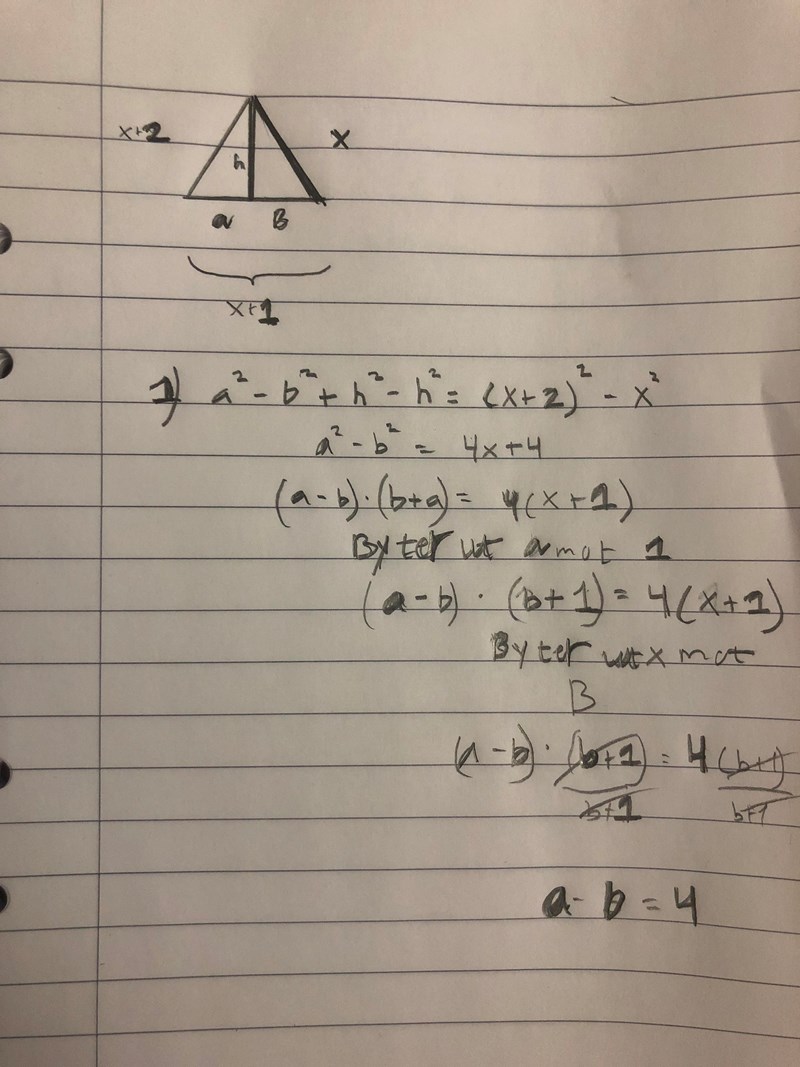 x+2
x
h
a B
x+1
1) a² - b² + h² - h² = (x+2)² - x²
a² - b² = 4x+4
(a-b)·(b+a) = 4(x+1)
Byter ut a mot 1
(a-b)·(b+1) = 4(x+1)
Byter ut x mot
B
(a-b)·(b+1) = 4(b+1)
b+1 b+1
a-b=4